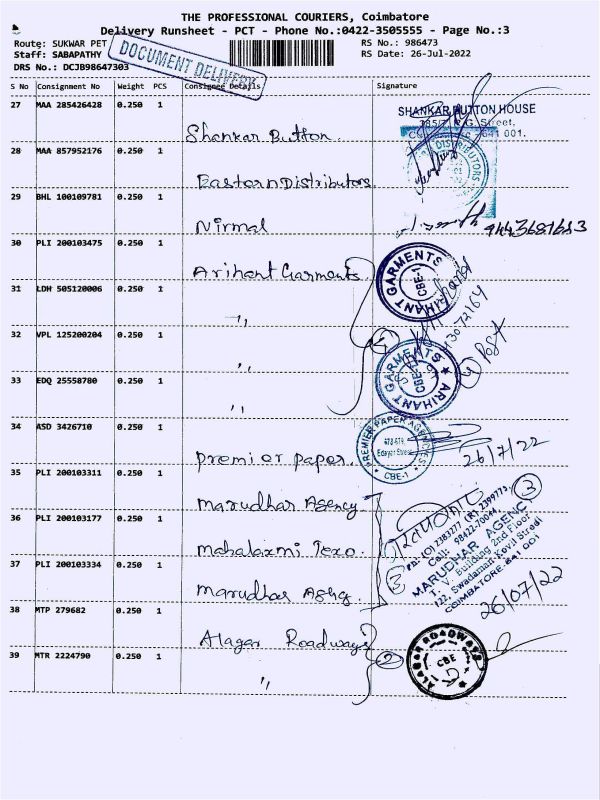 THE PROFESSIONAL COURIERS, Coimbatore
Delivery Runsheet - PCT - Phone No.:0422-3505555 - Page No.:3
Route: SUKWAR PET
RS No.: 986473
Staff: SABAPATHY
RS Date: 26-Jul-2022
DRS No.: DCJB98647303
DOCUMENT DELIVERY
S No Consignment No Weight PCS Consignee Details Signature
27 MAA 285426428 0.250 1
Shankar Button
SHANKAR BUTTON HOUSE
28 MAA 857952176 0.250 1
Eastern Distributors
29 BHL 100109781 0.250 1
Nirmal
30 PLI 200103475 0.250 1
Arihant Garments
ARIHANT GARMENTS
CBE-1
31 LDH 505120006 0.250 1
"
32 VPL 125200204 0.250 1
"
4 Post
ARIHANT GARMENTS
CBE-1
33 EDQ 25558780 0.250 1
"
34 ASD 3426710 0.250 1
Premier paper
PREMIER PAPER AGENCIES
CBE-1
26/7/22
35 PLI 200103311 0.250 1
Marudhar Agency
3
36 PLI 200103177 0.250 1
Mahalaxmi Texo
Ph: (O) 2383277 (R) 2399775
Cell: 98422-70044
MARUDHAR AGENCY
T.V. Building 2nd Floor
122, Swadaman Kovil Street
COIMBATORE-641 001
37 PLI 200103334 0.250 1
3
26/07/22
38 MTP 279682 0.250 1
Alagar Roadways
2
ALAGAR ROADWAYS
CBE
39 MTR 2224790 0.250 1
"